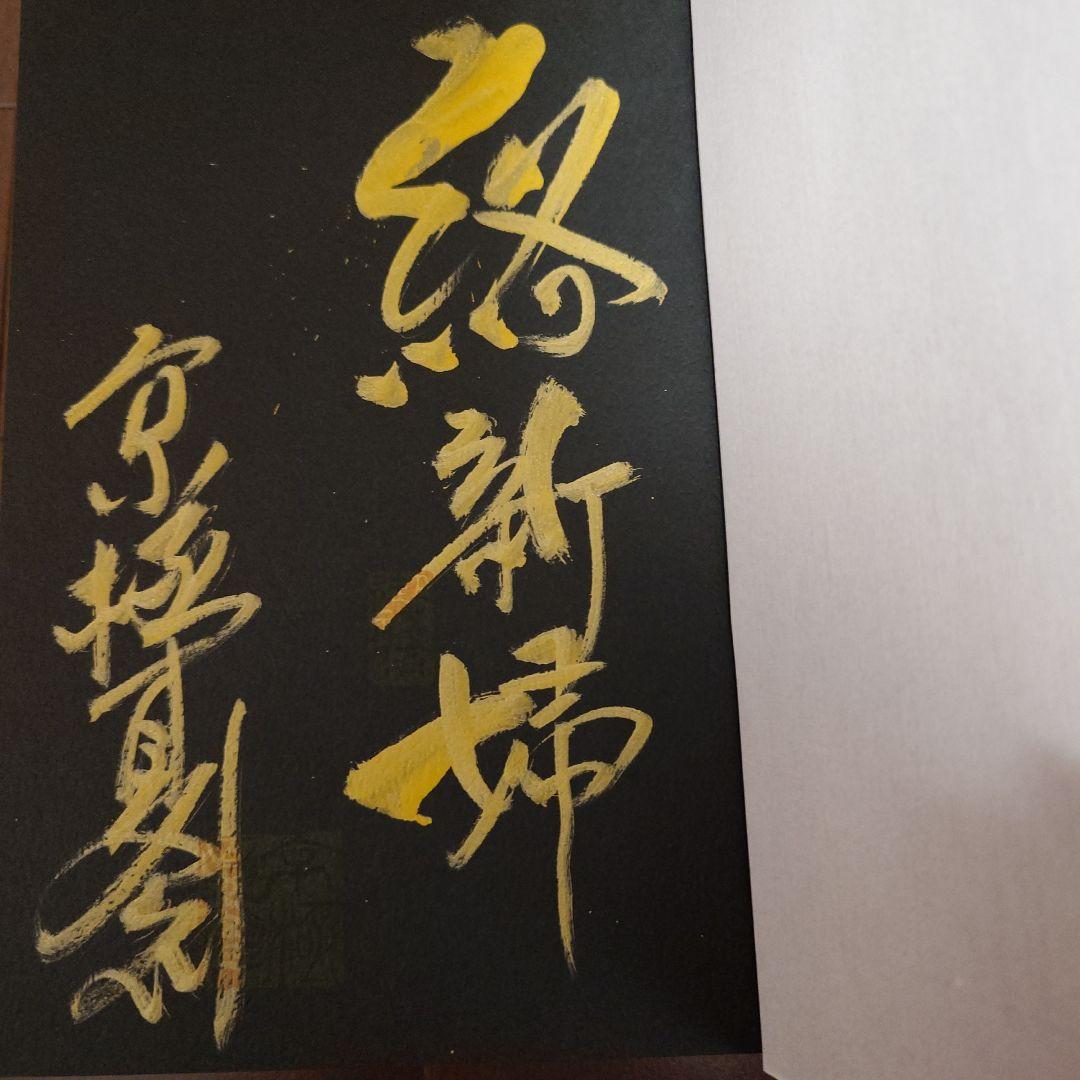 絡新婦
京極夏彦